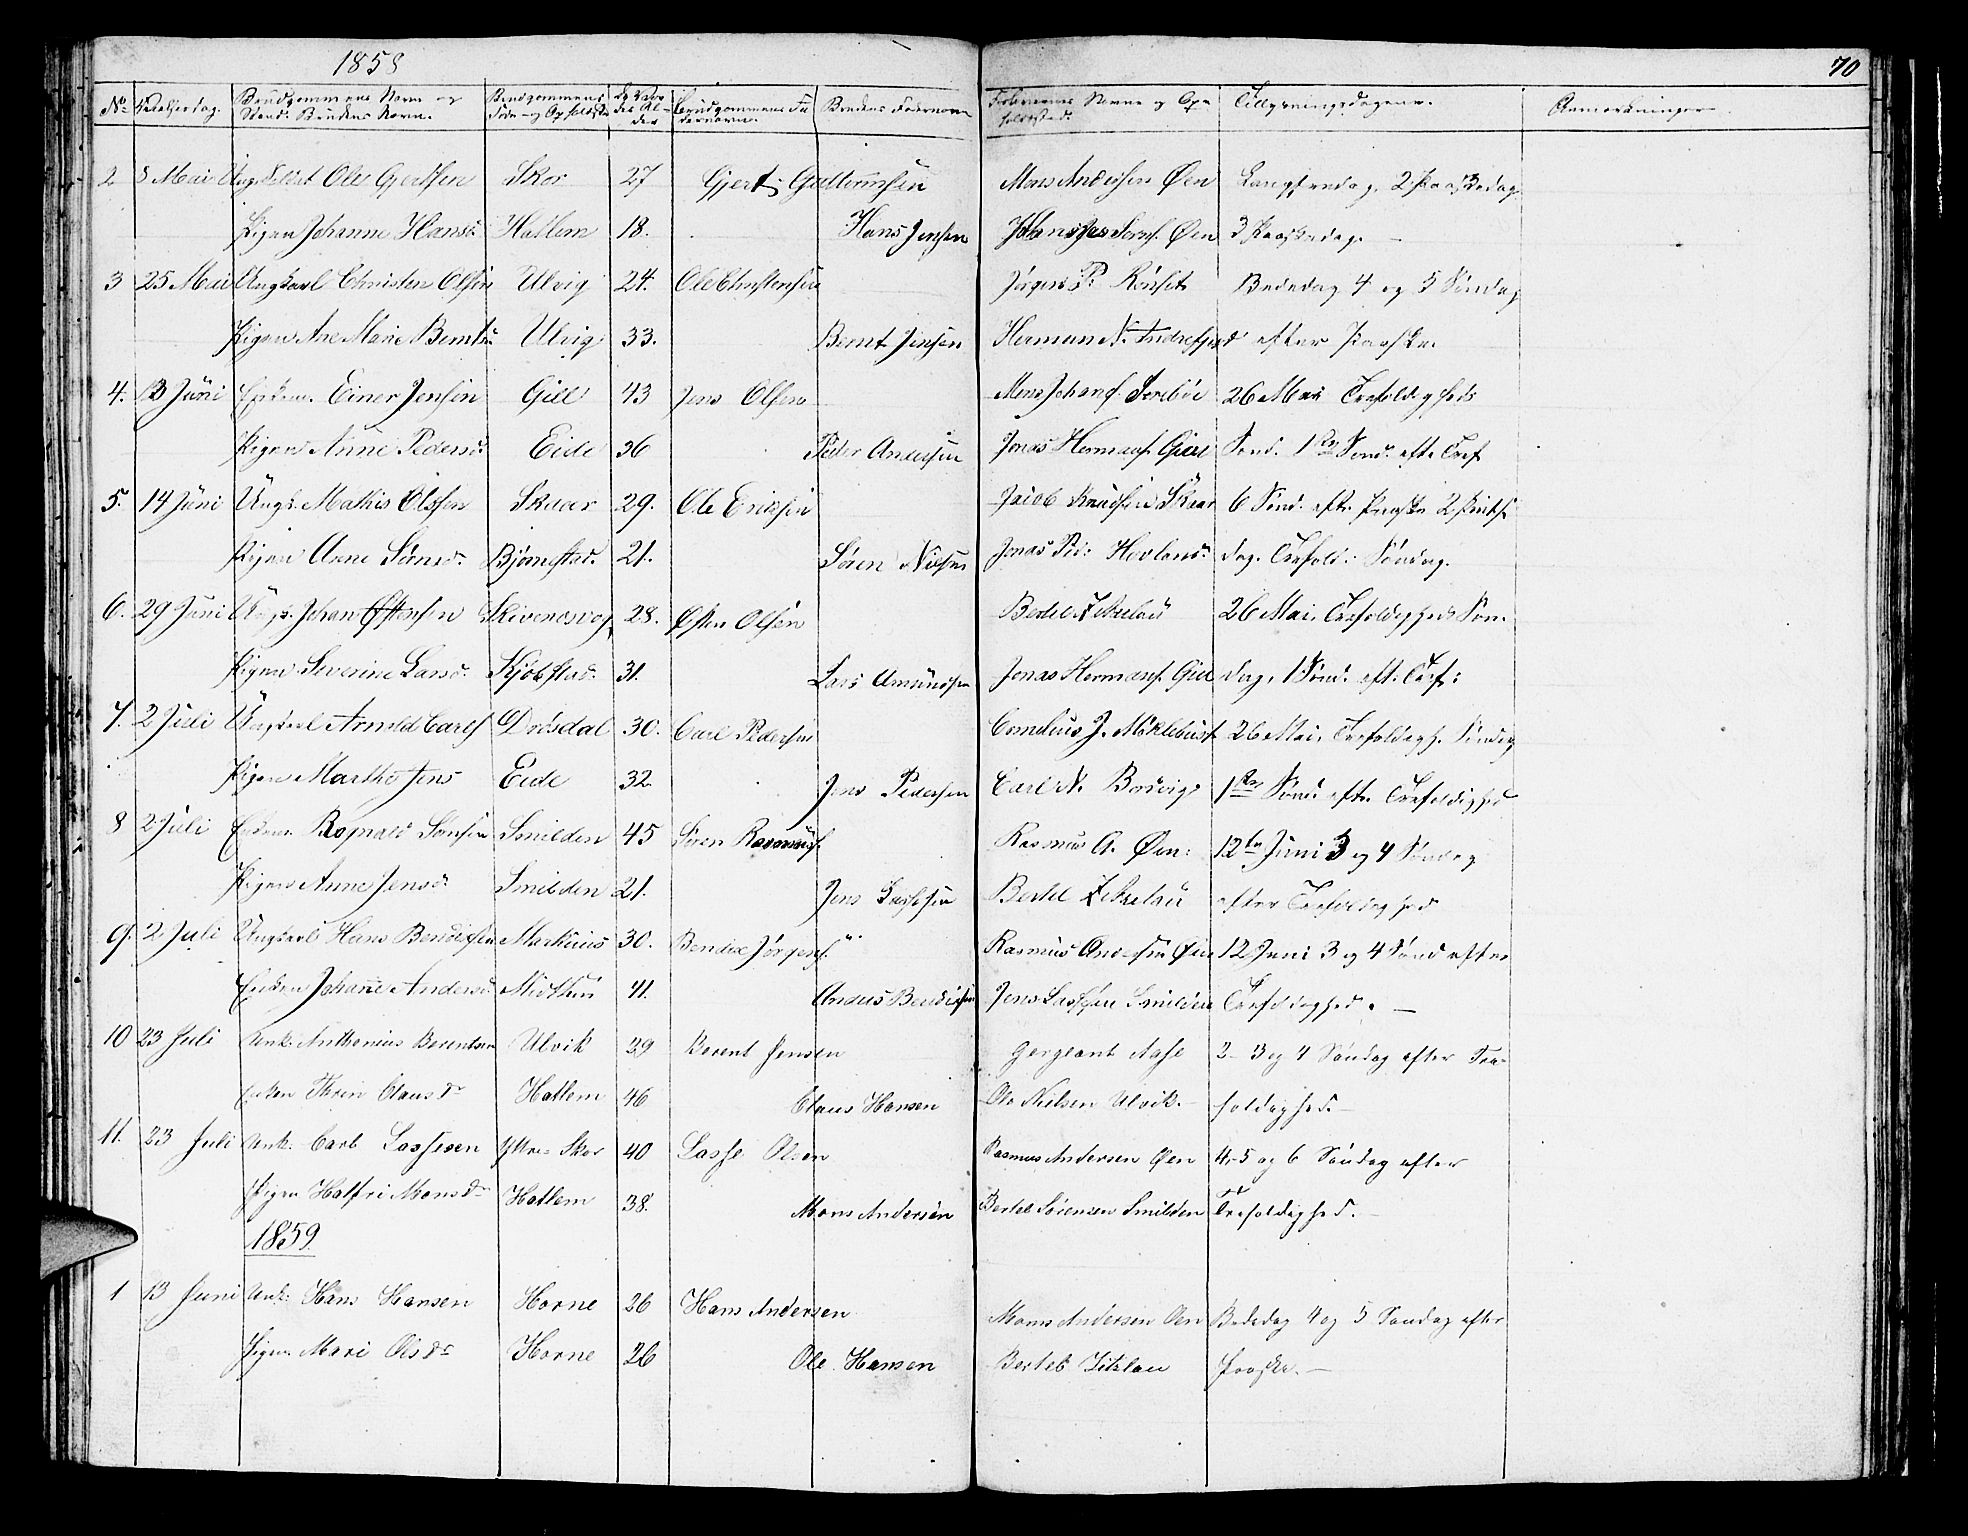 1858 70
No Brudgommens Navn og Brudgommens Brudgommens Fa Brudens Fadernavn Forlovernes Navne og Op Tillysningsdagene. Anmærkninger
Stand. Brudens Navn. Føde- og Opholdssted der dernavn. holdssted.
2 8 Mai Ole Gjertsen Skor 27 Gjert Guttormsen Mons Andersen Øen Langfredag, 2 Paaskedag
Pigen Johanne Hansd. Hatlem 18. Hans Jensen Øen 3 Paaskedag. —
3 25 Mai Ungkarl Christen Olsen Ulvig 24. Ole Christensen Jørgen P. Rønset Bededag 4 og 5 Søndag
Pigen Ane Marie Berntsd. Ulvig 33. Bernt Jensen Herman N. efter Paaske.
4. 13 Juni Enkem. Einer Jensen Gill 43 Jens Olsen Mons Johans. 26 Mai Trefoldigheds
Pigen Anne Pedersd. Eide 36 Peder Andersen Jonas Hermans. Gill Sønd. 1ste Sønd. efter Tref
5. 14 Juni Ungk. Mathis Olssen Skaar 29. Ole Erikssen Jacob Knudsen Skaar 6 Sønd. eft. Paaske 2 Pintse
Pigen Anne Sørensd. Bjørnstad. 21. Søren Nilsen Jonas Ped: Hovland. dag. Trefold: Søndag.
6. 29 Juni Ungk. Johan Østensen Skivenesvog 28. Østen Olsen Bertel Zetzlau 26 Mai. Trefoldigheds Søn-
Pigen Severine Larsd. Kjøbstad. 31. Lars Amundsen Jonas Hermans. Gill dag, 1 Sønd. eft. Tref:
7. 2 Juli Ungkarl Arnold Carls Drøsdal 30. Carl Pedersen Cornelius J. Møklebust 26 Mai, Trefoldigh. Søndag
Pigen Marthe Jens Eide 32 Jens Pedersen Carl N. Bosvig 1ste Sønd. eft. Trefoldighed
8 2 Juli Enkem. Rognald Sørensen Smilden 45 Søren Rasmus. Rasmus A. Øen: 12te Juni 3 og 4 Søndag
Pigen Anne Jensd. Smilden 21. Jens Lassesen Bertel Zetzlau efter Trefoldighed
9. 2 Juli Ungkarl Hans Bendixsen Markhuus 30. Bendix Jørgens. Rasmus Andersen Øen 12 Juni 3 og 4 Sønd efter
Enken Johanne Andersd. Midthun 41. Anders Bendixsen Jens Lassesen Smilden Trefoldighed. —
10 23 Juli Unk. Anthonius Berentsen Ulvik 29 Berent Jensen Sergeant Aase 2- 3 og 4 Søndag efter Tre-
Enken Thrin Clausdr Hatlem 46 Claus Hansen Ole Nilsen Ulvik. foldighed. —
11. 23 Juli Unk. Carl Lassesen Yttre Skor 40 Lasse Olsen Rasmus Andersen Øen 4- 5 og 6 Søndag efter
Pigen Halfri Monsdr Hatlem 38. Mons Andersen Bertel Sørensen Smilden Trefoldighed. —
1859.
1 13 Juni Unk. Hans Hansen Horne 26 Hans Andersen Mons Andersen Øen Bededag 4 og 5 Søndag efter
Pigen Mari Olsdr Horne 26 Ole Hansen Bertel Zitzlau Paaske. —